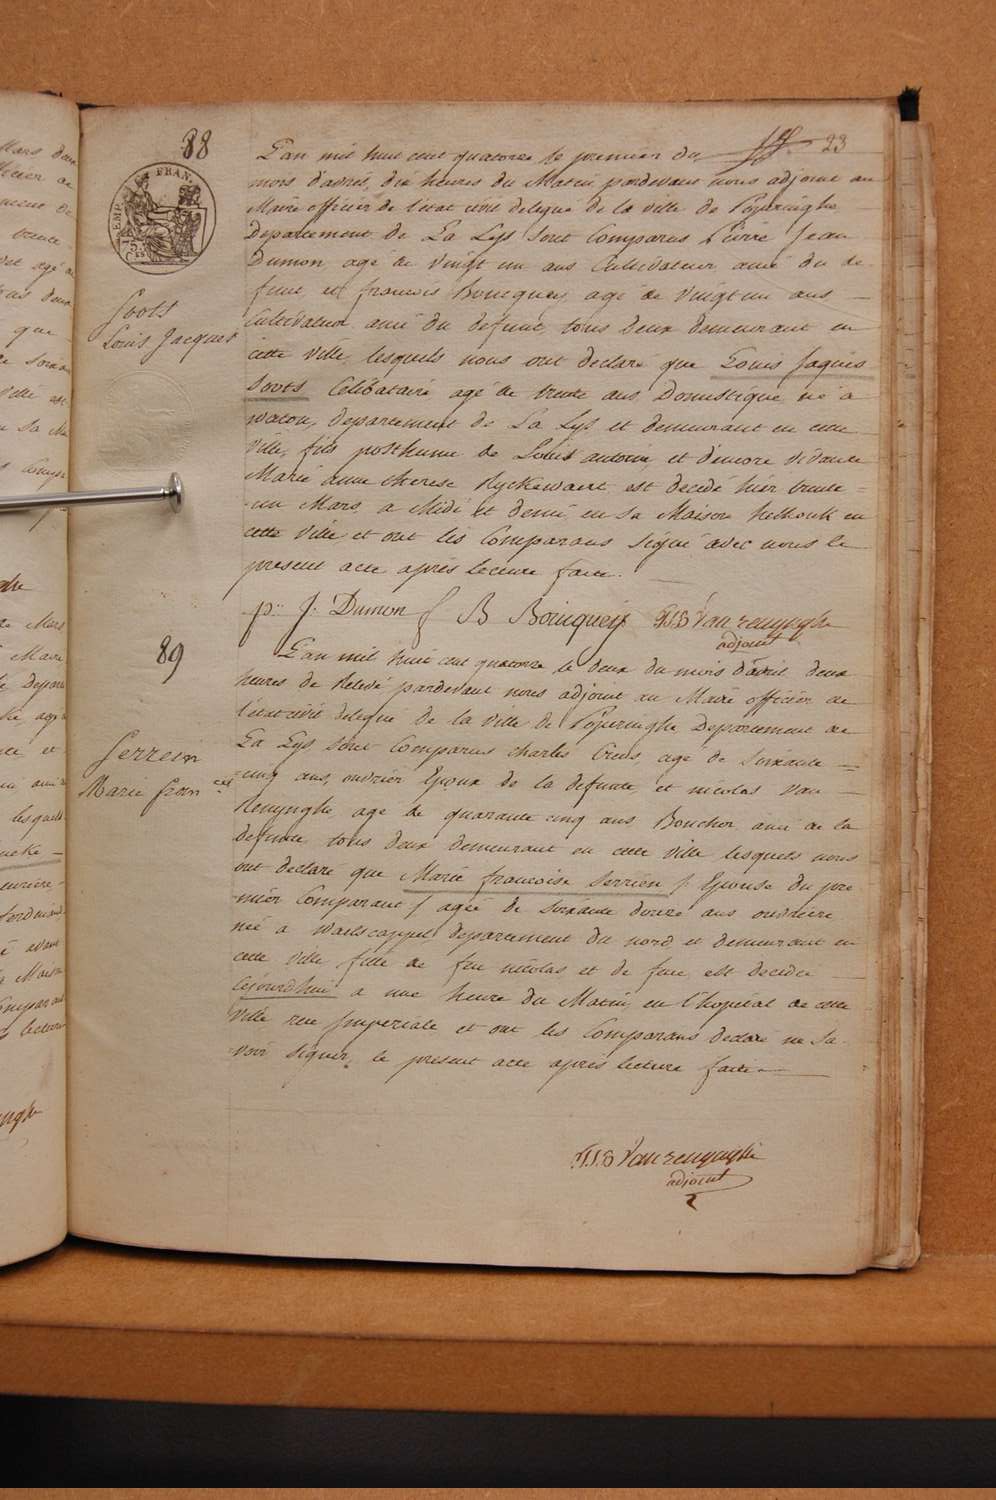 23
88
L'an mil huit cent quatorze le premier du
mois d'avril, dix heures du Matin pardevant nous adjoint au
Maire officier de l'etat civil delegué de la ville de Poperinghe
Departement de La Lys sont Comparus Pierre Jean
Dumon agé de vingt un ans Cultivateur ami du de
funt, et francois Boucquey, agé de vingt un ans
Cultivateur ami du defunt, tous deux demeurant en
cette ville, lesquels nous ont declaré que Louis Jaques
Soots Celibataire agé de trente ans Domestique né a
watou, departement de La Lys et demeurant en cette
ville, fils posthume de Louis antoine, et d'encore vivante
Marie anne therese Ryckewaert est decedé hier trente
un Mars, a Midi et demi, en sa Maison helhouk en
cette ville et ont les Comparans signé avec nous le
present acte après lecture faite.
Soots
Louis Jacques
EMP. FRAN.
p. J. Dumon f B Boucqueij F.J.B Van renynghe
adjoint
89
L'an mil huit cent quatorze le deux du mois d'avril deux
heures de Relevé pardevant nous adjoint au Maire officier de
l'etat civil delegué de la ville de Poperinghe Departement de
La Lys sont Comparus charles Creus, agé de soixante
cinq ans, ouvrier Epoux de la defunte, et nicolas Van
Renynghe agé de quarante cinq ans Boucher ami de la
defunte tous deux demeurant en cette ville lesquels nous
ont declaré que Marie francoise Serrien / Epouse du pre
mier Comparant / agée de soixante douze ans ouvriere
née a waelscappel departement du nord et demeurant en
cette ville fille de feu nicolas et de feue, est decedée
Cejourdhui a une heure du Matin, en l'hopital de cette
ville rue Imperiale et ont les Comparans declaré ne sa
voir signer, le present acte après lecture faite.
Serrein
Marie fran
F.J.B Van renynghe
adjoint